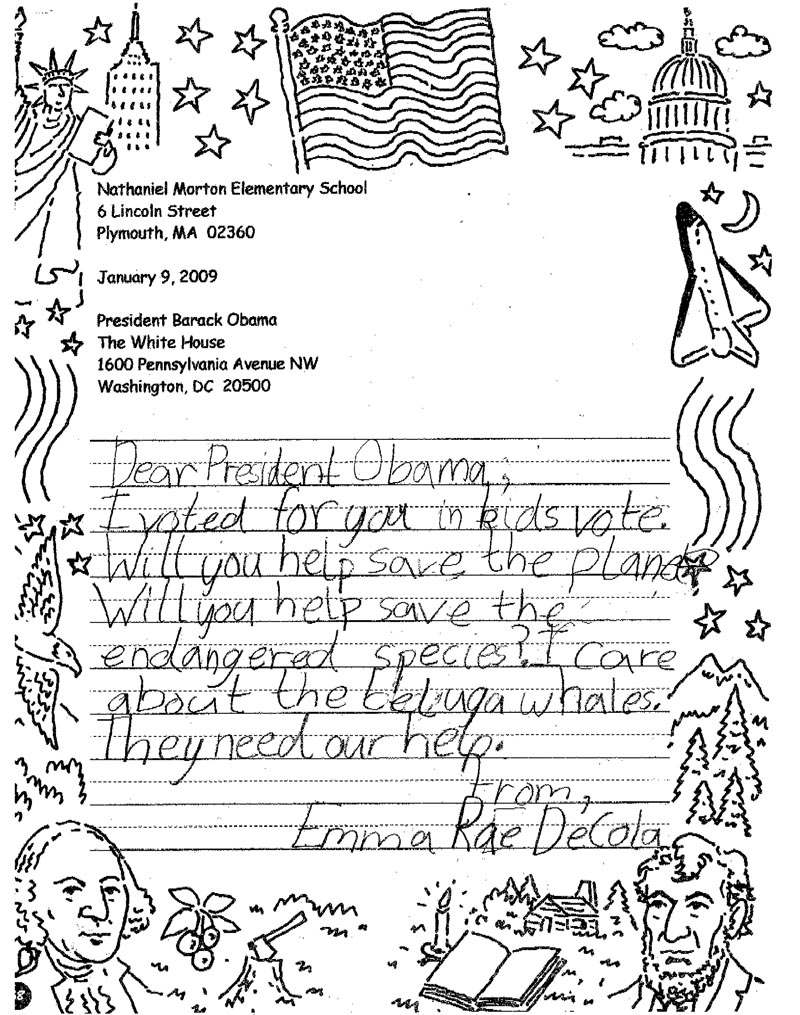 Nathaniel Morton Elementary School
6 Lincoln Street
Plymouth, MA 02360
January 9, 2009
President Barack Obama
The White House
1600 Pennsylvania Avenue NW
Washington, DC 20500
Dear President Obama,
I voted for you in kids vote.
Will you help save the planet?
Will you help save the
endangered species? I care
about the beluga whales.
They need our help.
From,
Emma Rae DeCola